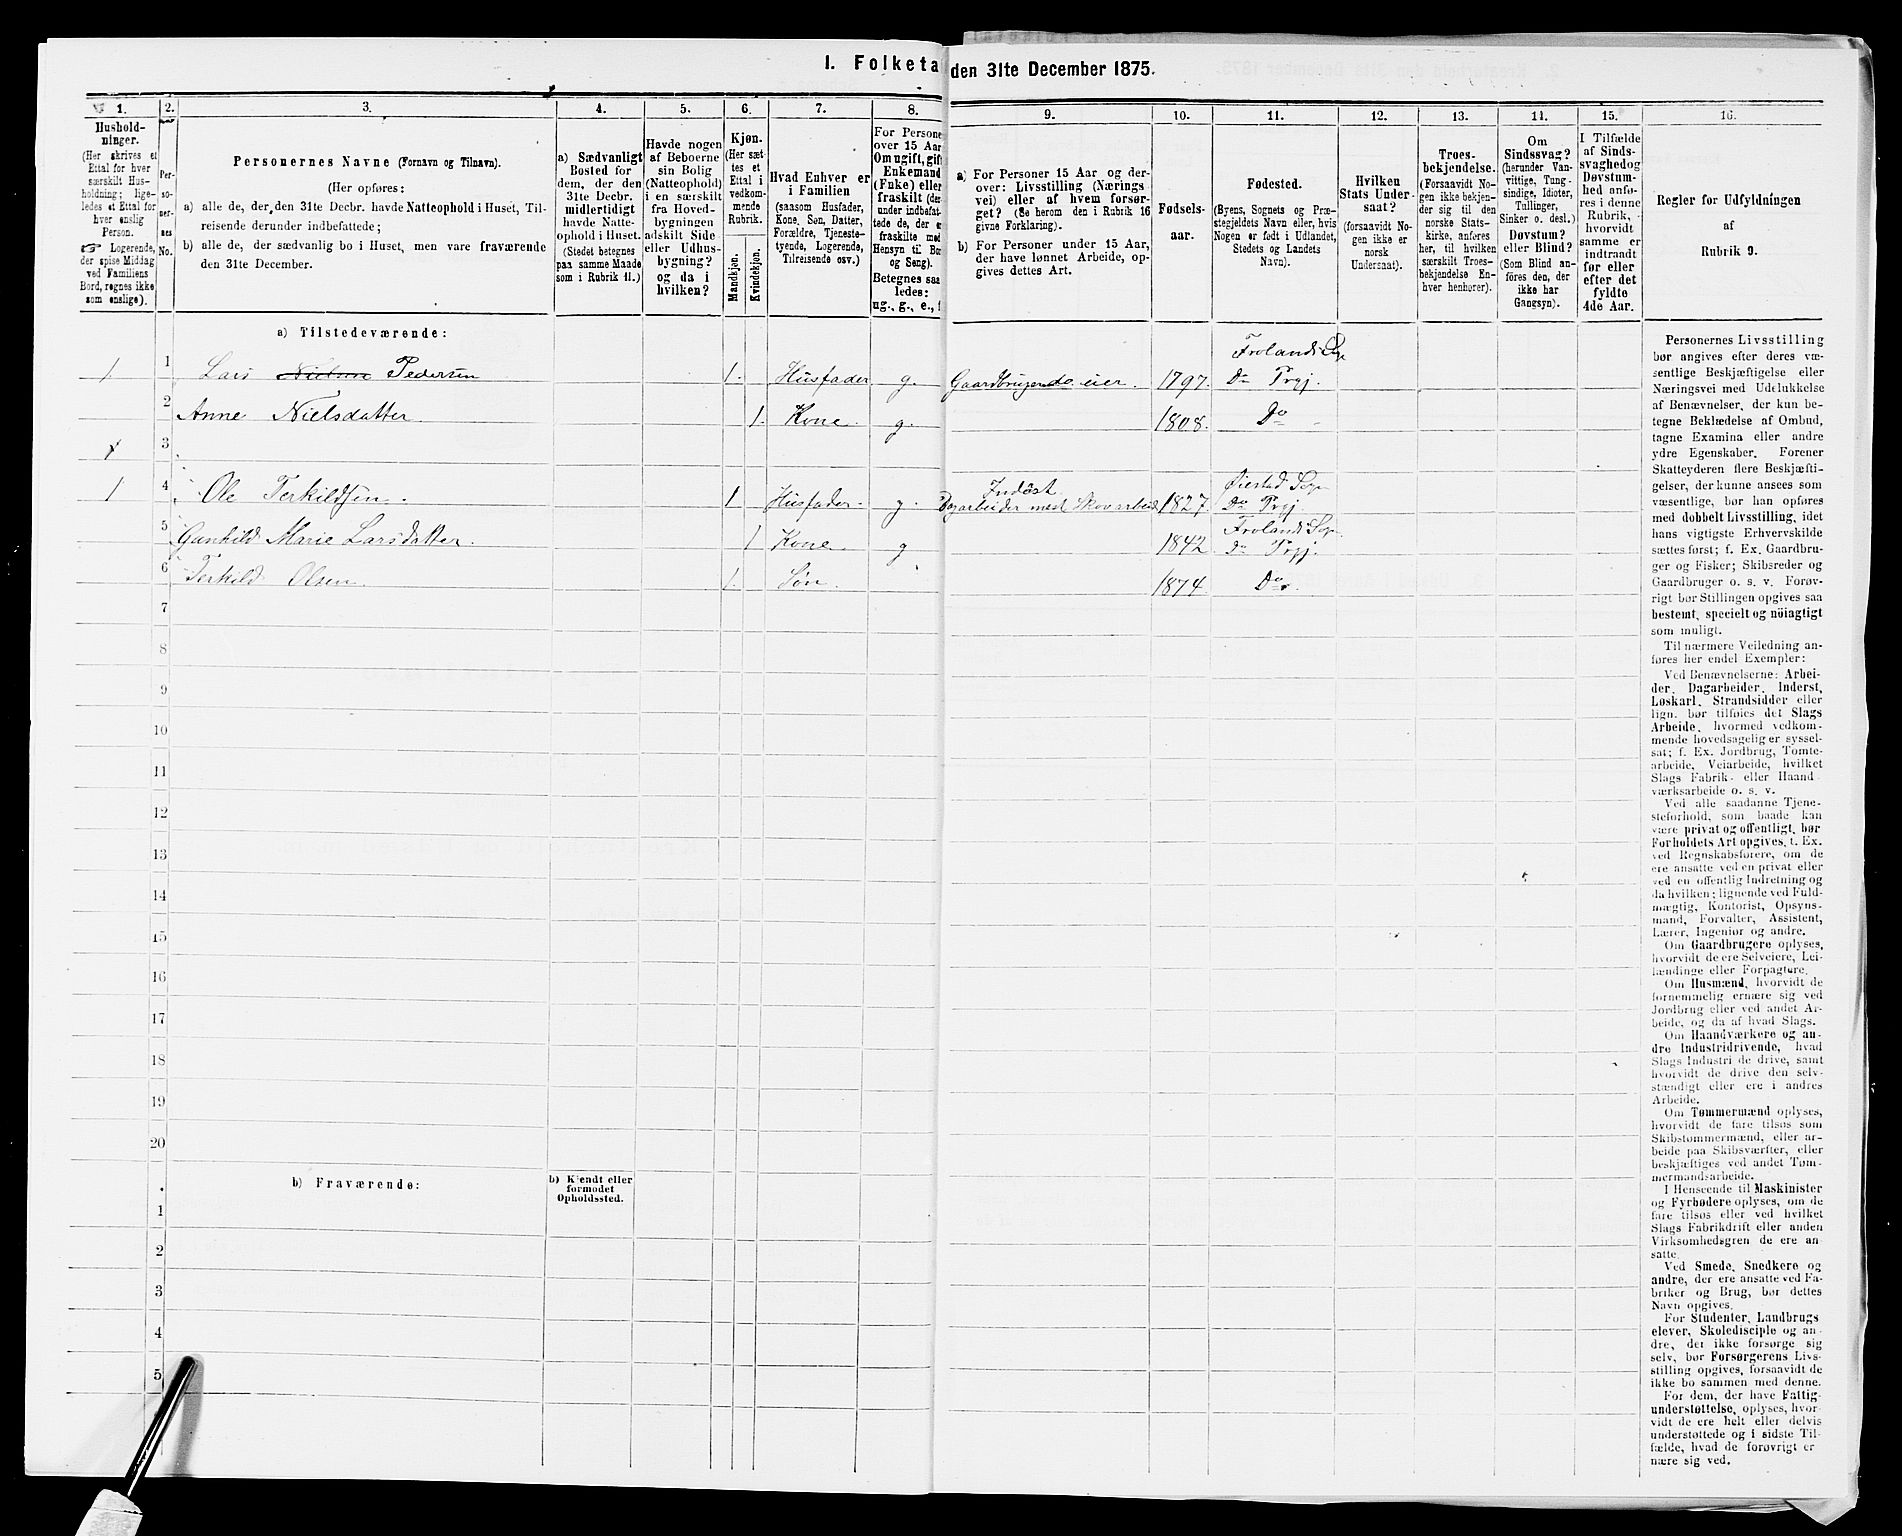 I. Folketa den 31te December 1875.
1. 2. 3. 4. 5. 6. 7. 8. 9. 10. 11. 12. 13. 14. 15. 16.
Hushold-
ninger.
(Her skrives et
Ettal for hver
særskilt Hus-
holdning; lige-
ledes et Ettal for
hver enslig
Person.
☞ Logerende,
der spise Middag
ved Familiens
Bord, regnes ikke
som enslige).
Per-
so-
ner-
nes
No.
Personernes Navne (Fornavn og Tilnavn).
(Her opføres:
a) alle de, der den 31te Decbr. havde Natteophold i Huset, Til-
reisende derunder indbefattede;
b) alle de, der sædvanlig bo i Huset, men vare fraværende
den 31te December.
a) Sædvanligt
Bosted for
dem, der den
31te Decbr.
midlertidigt
havde Natte-
ophold i Huset.
(Stedet betegnes
paa samme Maade
som i Rubrik 11.)
Havde nogen
af Beboerne
sin Bolig
(Natteophold)
i en særskilt
fra Hoved-
bygningen
adskilt Side-
eller Udhus-
bygning?
og da i
hvilken?
Kjøn.
(Her sæt-
tes et
Ettal i
vedkom-
mende
Rubrik.
Mandkjøn.
Kvindekjøn.
Hvad Enhver er
i Familien
(saasom Husfader,
Kone, Søn, Datter,
Forældre, Tjeneste-
tyende, Logerende,
Tilreisende osv.)
For Persone
over 15 Aar
Om ugift, gift
Enkemand
(Enke) eller
fraskilt (der-
under indbefat-
tede de, der e
fraskilte med
Hensyn til Bo
og Seng).
Betegnes saa
ledes:
ug., g., e., f
a) For Personer 15 Aar og der-
over: Livsstilling (Nærings
vei) eller af hvem forsør-
get? (Se herom den i Rubrik 16
givne Forklaring).
b) For Personer under 15 Aar,
der have lønnet Arbeide, op-
gives dettes Art.
Fødsels-
aar.
Fødested.
(Byens, Sognets og Præ-
stegjeldets Navn eller, hvis
Nogen er født i Udlandet,
Stedets og Landets
Navn).
Hvilken
Stats Under-
saat?
(forsaavidt No-
gen ikke er
norsk
Undersaat).
Troes-
bekjendelse.
(Forsaavidt No-
gen ikke bekjen-
der sig til den
norske Stats-
kirke, anføres
her, til hvilken
særskilt Troes-
bekjendelse En-
hver henhører).
Om
Sindssvag?
(herunder Van-
vittige, Tung-
sindige, Idioter,
Tullinger,
Sinker o. desl.)
Døvstum?
eller Blind?
(Som Blind an-
føres den, der
ikke har
Gangsyn).
I Tilfælde
af Sinds-
svaghed og
Døvstum-
hed anfø-
res i denne
Rubrik,
hvorvidt
samme er
indtraadt
før eller
efter det
fyldte
4de Aar.
Regler for Udfyldningen
af
Rubrik 9.
a) Tilstedeværende:
1 1 Lars Nielsen Pedersen 1. Husfader g. Gaardbruger do eier. 1797. Frolands Sogn Do Prgj.
2 Anne Nielsdatter 1. Kone g. 1808. Do
3
1 4 Ole Terkildsen 1 Husfader g. Inderst Dagarbeider med Skovarbeid 1827. Øiestad Sogn Do Prgj.
5 Gunhild Marie Larsdatter. 1 Kone g 1842. Frolands Sogn Do Prgj.
6 Terkild Olsen 1. Søn 1874. Do
7
8
9
10
11
12
13
14
15
16
17
18
19
20
b) Fraværende:
b) Kjendt eller
formodet
Opholdssted.
1
2
3
4
5
Personernes Livsstilling
bør angives efter deres væ-
sentlige Beskjæftigelse eller
Næringsvei med Udelukkelse
af Benævnelser, der kun be-
tegne Beklædelse af Ombud,
tagne Examina eller andre
ydre Egenskaber. Forener
Skatteyderen flere Beskjæfti-
gelser, der kunne ansees som
væsentlige, bør han opføres
med dobbelt Livsstilling, idet
hans vigtigste Erhvervskilde
sættes først; f. Ex. Gaardbru-
ger og Fisker; Skibsreder og
Gaardbruger o. s. v. Forøv-
rigt bør Stillingen opgives saa
bestemt, specielt og nöiagtigt
som muligt.
Til nærmere Veiledning an-
føres her endel Exempler:
Ved Benævnelserne: Arbei-
der, Dagarbeider, Inderst,
Løskarl, Strandsidder eller
lign. bør tilføies det Slags
Arbeide, hvormed vedkom-
mende hovedsagelig er syssel-
sat; f. Ex. Jordbrug, Tomte-
arbeide, Veiarbeide, hvilket
Slags Fabrik- eller Haand-
værksarbeide o. s. v.
Ved alle saadanne Tjene-
steforhold, som baade kan
være privat og offentligt, bør
Forholdets Art opgives, t. Ex.
ved Regnskabsførere, om de
ere ansatte ved en privat eller
ved en offentlig Indretning og
da hvilken; lignende ved Fuld-
mægtig, Kontorist, Opsyns-
mand, Forvalter, Assistent,
Lærer, Ingeniør og andre.
Om Gaardbrugere oplyses,
hvorvidt de ere Selveiere, Lei-
lændinge eller Forpagtere.
Om Husmænd, hvorvidt de
fornemmelig ernære sig ved
Jordbrug eller ved andet Ar-
beide, og da af hvad Slags.
Om Haandværkere og an-
dre Industridrivende, hvad
Slags Industri de drive, samt
hvorvidt de drive den selv-
stændigt eller ere i andres
Arbeide.
Om Tømmermænd oplyses,
hvorvidt de fare tilsøs som
Skibstømmermænd, eller ar-
beide paa Skibsværfter, eller
beskjæftiges ved andet Tøm-
mermandsarbeide.
I Henseende til Maskinister
og Fyrbødere oplyses, om de
fare tilsøs eller ved hvilket
Slags Fabrikdrift eller anden
Virksomhedsgren de ere an-
satte.
Ved Smede, Snedkere og
andre, der ere ansatte ved Fa-
briker og Brug, bør dettes
Navn opgives.
For Studenter, Landbrugs
elever, Skoledisciple og an-
dre, der ikke forsørge sig
selv, bør Forsørgerens Livs-
stilling opgives, forsaavidt de
ikke bo sammen med denne.
For dem, der have Fattig-
understøttelse, oplyses, hvor-
vidt de ere helt eller delvis
understøttede og i sidste Til-
fælde, hvad de forøvrigt er
nære sig ved.